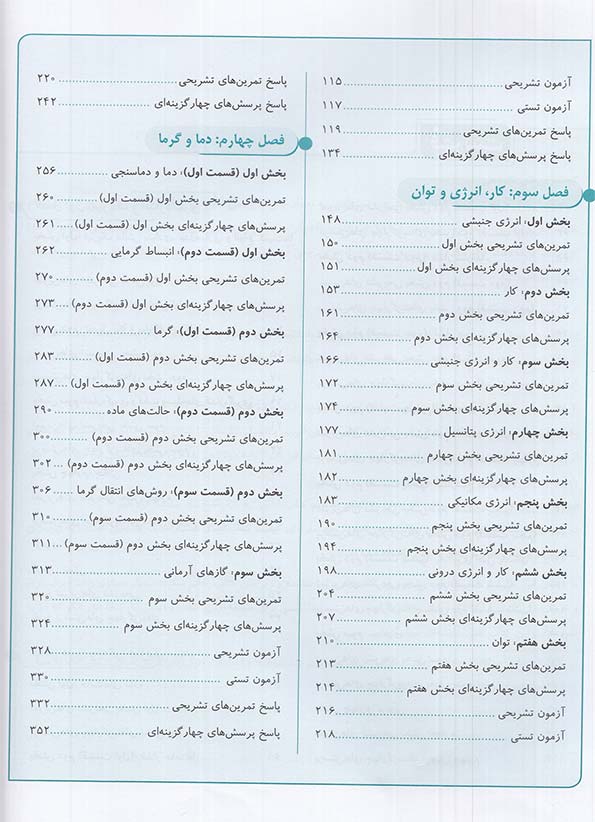 آزمون تشریحی ........ ۱۱۵
آزمون تستی ........ ۱۱۷
پاسخ تمرین‌های تشریحی ........ ۱۱۹
پاسخ پرسش‌های چهارگزینه‌ای ........ ۱۳۴
فصل سوم: کار، انرژی و توان
بخش اول: انرژی جنبشی ........ ۱۴۸
تمرین‌های تشریحی بخش اول ........ ۱۵۰
پرسش‌های چهارگزینه‌ای بخش اول ........ ۱۵۱
بخش دوم: کار ........ ۱۵۳
تمرین‌های تشریحی بخش دوم ........ ۱۶۱
پرسش‌های چهارگزینه‌ای بخش دوم ........ ۱۶۴
بخش سوم: کار و انرژی جنبشی ........ ۱۶۶
تمرین‌های تشریحی بخش سوم ........ ۱۷۲
پرسش‌های چهارگزینه‌ای بخش سوم ........ ۱۷۴
بخش چهارم: انرژی پتانسیل ........ ۱۷۷
تمرین‌های تشریحی بخش چهارم ........ ۱۸۱
پرسش‌های چهارگزینه‌ای بخش چهارم ........ ۱۸۲
بخش پنجم: انرژی مکانیکی ........ ۱۸۳
تمرین‌های تشریحی بخش پنجم ........ ۱۹۰
پرسش‌های چهارگزینه‌ای بخش پنجم ........ ۱۹۴
بخش ششم: کار و انرژی درونی ........ ۱۹۸
تمرین‌های تشریحی بخش ششم ........ ۲۰۴
پرسش‌های چهارگزینه‌ای بخش ششم ........ ۲۰۷
بخش هفتم: توان ........ ۲۱۰
تمرین‌های تشریحی بخش هفتم ........ ۲۱۳
پرسش‌های چهارگزینه‌ای بخش هفتم ........ ۲۱۴
آزمون تشریحی ........ ۲۱۶
آزمون تستی ........ ۲۱۸
پاسخ تمرین‌های تشریحی ........ ۲۲۰
پاسخ پرسش‌های چهارگزینه‌ای ........ ۲۴۲
فصل چهارم: دما و گرما
بخش اول (قسمت اول): دما و دماسنجی ........ ۲۵۶
تمرین‌های تشریحی بخش اول (قسمت اول) ........ ۲۶۰
پرسش‌های چهارگزینه‌ای بخش اول (قسمت اول) ........ ۲۶۱
بخش اول (قسمت دوم): انبساط گرمایی ........ ۲۶۲
تمرین‌های تشریحی بخش اول (قسمت دوم) ........ ۲۷۰
پرسش‌های چهارگزینه‌ای بخش اول (قسمت دوم) ........ ۲۷۳
بخش دوم (قسمت اول): گرما ........ ۲۷۷
تمرین‌های تشریحی بخش دوم (قسمت اول) ........ ۲۸۳
پرسش‌های چهارگزینه‌ای بخش دوم (قسمت اول) ........ ۲۸۷
بخش دوم (قسمت دوم): حالت‌های ماده ........ ۲۹۰
تمرین‌های تشریحی بخش دوم (قسمت دوم) ........ ۳۰۰
پرسش‌های چهارگزینه‌ای بخش دوم (قسمت دوم) ........ ۳۰۲
بخش دوم (قسمت سوم): روش‌های انتقال گرما ........ ۳۰۶
تمرین‌های تشریحی بخش دوم (قسمت سوم) ........ ۳۱۰
پرسش‌های چهارگزینه‌ای بخش دوم (قسمت سوم) ........ ۳۱۱
بخش سوم: گازهای آرمانی ........ ۳۱۳
تمرین‌های تشریحی بخش سوم ........ ۳۲۰
پرسش‌های چهارگزینه‌ای بخش سوم ........ ۳۲۴
آزمون تشریحی ........ ۳۲۸
آزمون تستی ........ ۳۳۰
پاسخ تمرین‌های تشریحی ........ ۳۳۲
پاسخ پرسش‌های چهارگزینه‌ای ........ ۳۵۲